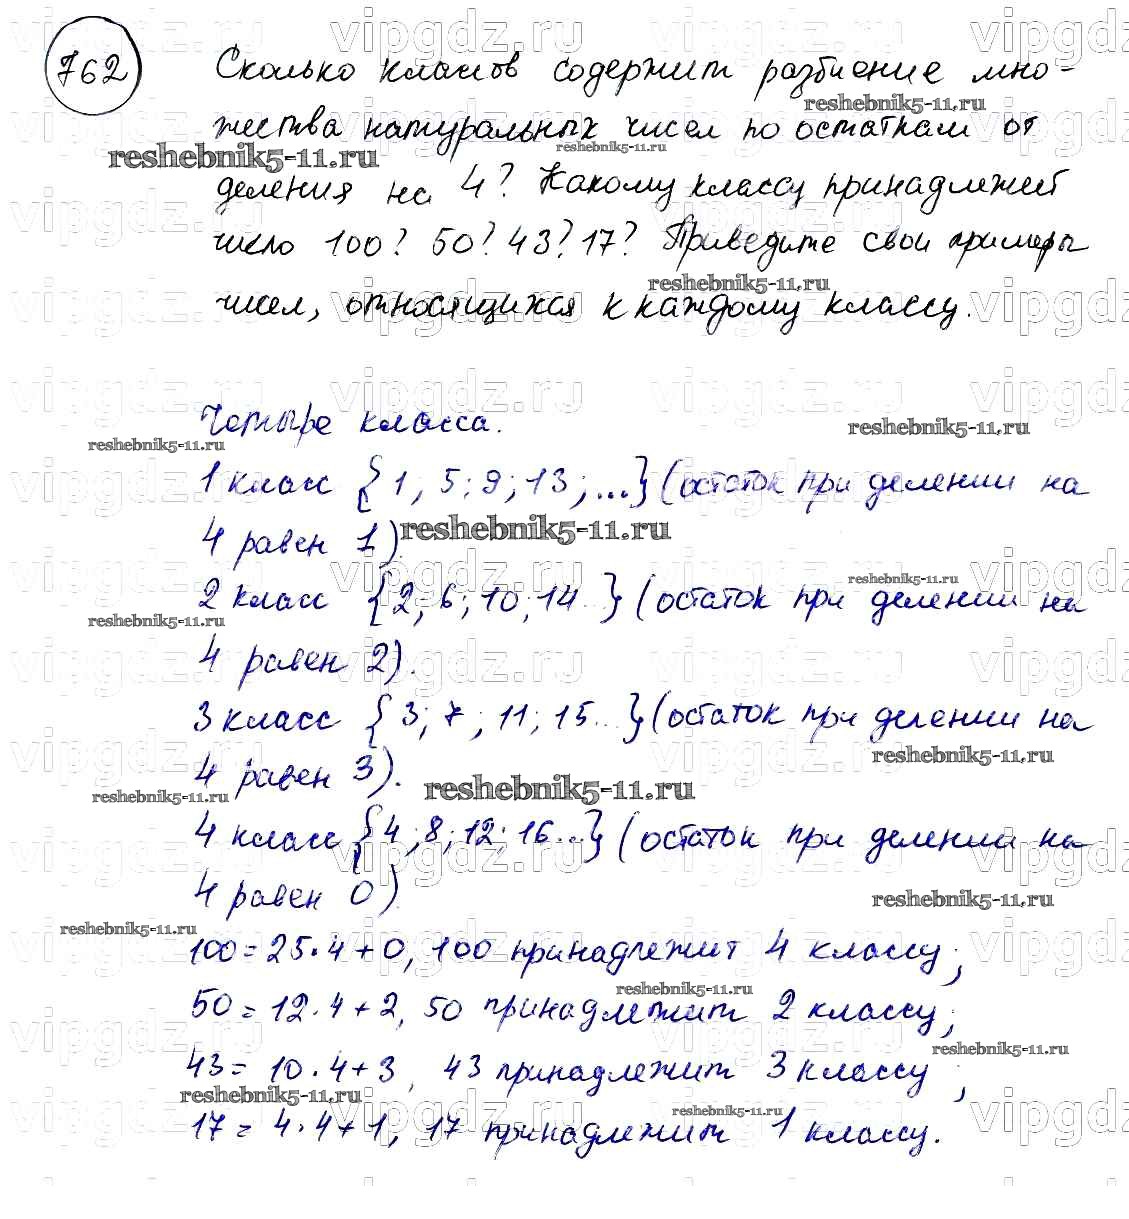 762
Сколько классов содержит разбиение мно-
жества натуральных чисел по остаткам от
деления на 4? Какому классу принадлежит
число 100? 50? 43? 17? Приведите свои примеры
чисел, относящихся к каждому классу.
Четыре класса.
1 класс {1, 5; 9; 13; ...} (остаток при делении на
4 равен 1).
2 класс {2; 6; 10; 14...} (остаток при делении на
4 равен 2).
3 класс {3; 7; 11; 15...} (остаток при делении на
4 равен 3).
4 класс {4; 8; 12; 16...} (остаток при делении на
4 равен 0).
100 = 25·4+0, 100 принадлежит 4 классу;
50 = 12·4+2, 50 принадлежит 2 классу;
43 = 10·4+3, 43 принадлежит 3 классу;
17 = 4·4+1, 17 принадлежит 1 классу.
vipgdz.ru
reshebnik5-11.ru